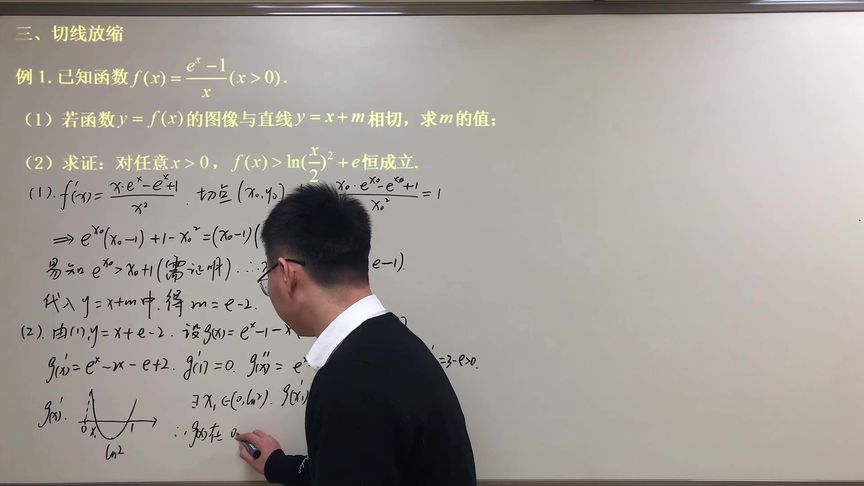 三、切线放缩
例 1. 已知函数 f(x) = \frac{e^x - 1}{x} (x > 0).
（1）若函数 y = f(x) 的图像与直线 y = x + m 相切，求 m 的值；
（2）求证：对任意 x > 0，f(x) > ln(\frac{x}{2})^2 + e 恒成立.
(1). f'(x) = \frac{x·e^x - e^x + 1}{x^2} . 切点 (x_0, y_0) \frac{x_0·e^{x_0} - e^{x_0} + 1}{x_0^2} = 1
⇒ e^{x_0}(x_0 - 1) + 1 - x_0^2 = (x_0 - 1)(
易知 e^{x_0} > x_0 + 1 (需证明). ∴ e - 1).
代入 y = x + m 中. 得 m = e - 2.
(2). 由(1), y = x + e - 2. 设 g(x) = e^x - 1 - x
g'(x) = e^x - 2x - e + 2. g'(1) = 0. g''(x) = e^x = 3 - e > 0.
g'(x). 0 x_1 1 ∃ x_1 ∈ (0, ln2). g'(x_1)
ln2 ∴ g(x) 在 0